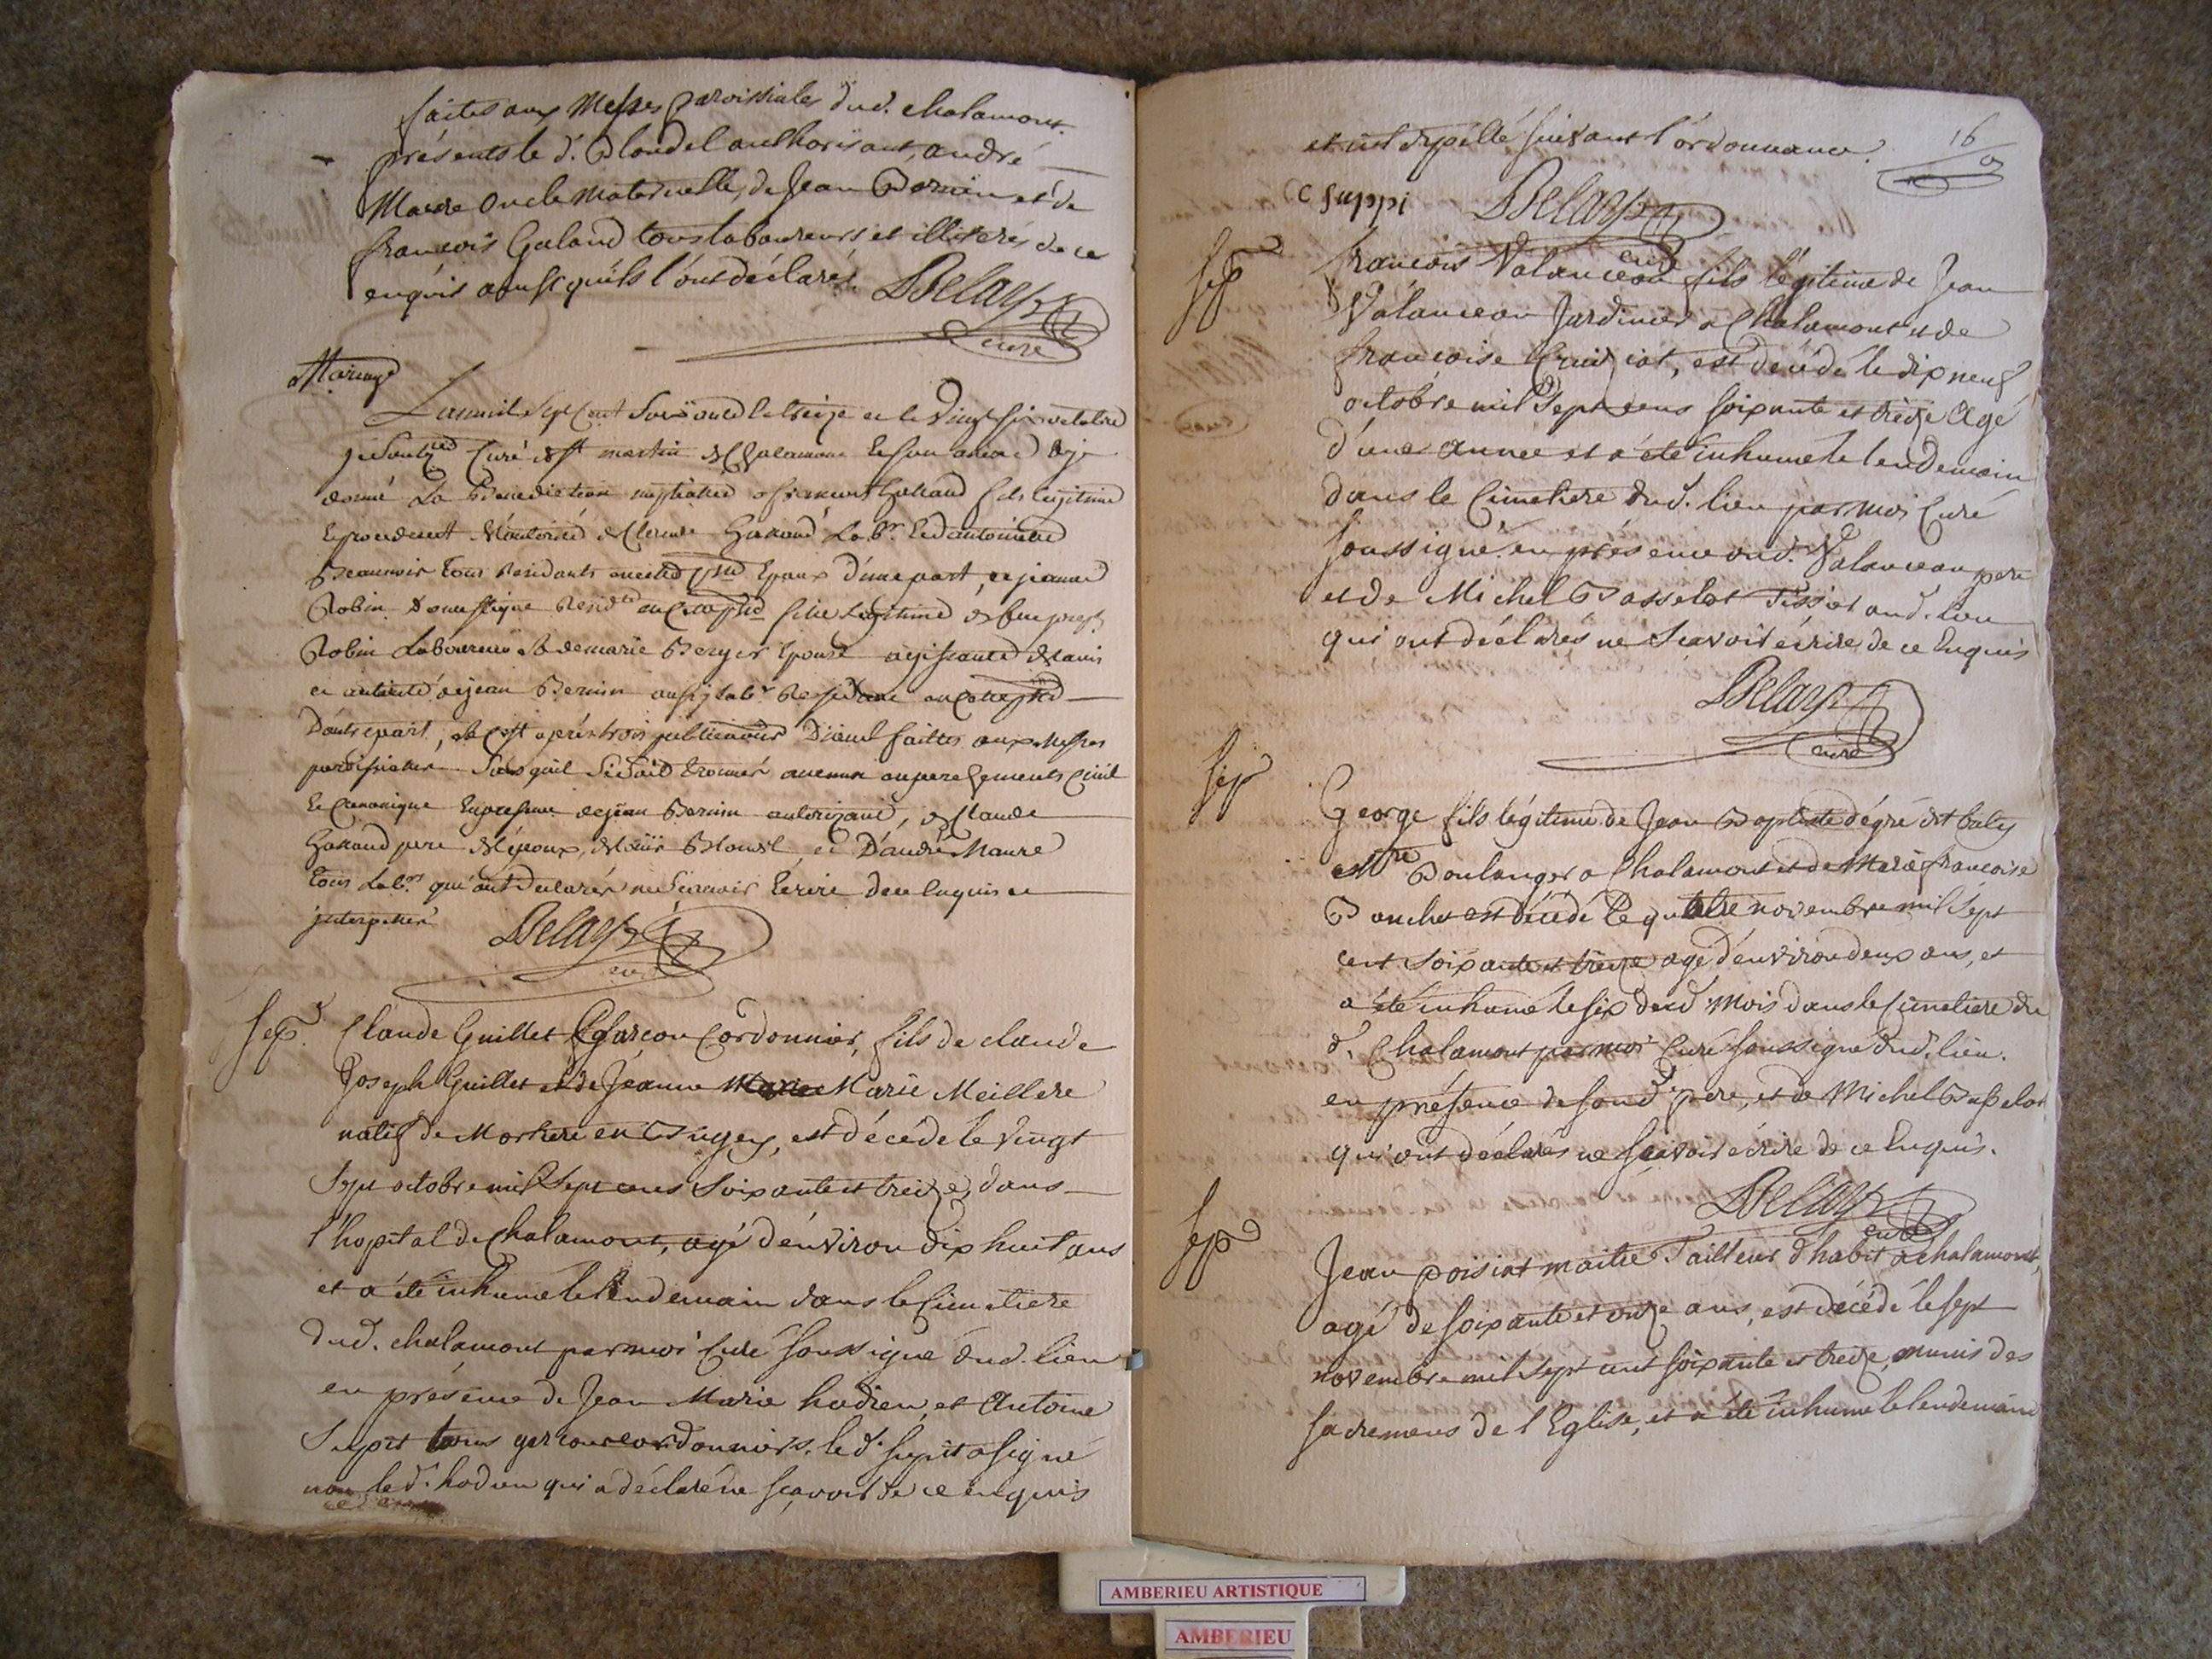 faites aux Messes Paroissiales dud. chalamont.
présents le d. Blondel authorisant, andré
Maure oncle maternelle, de Jean Bernin et de
francois Galand tous laboureurs et illiterés de ce
enquis ainsi quils l'ont déclarés. Delaye
curé
Mariage
L'an mil sept cent soixante et treize et le vingt six octobre
je soussigné curé de st martin de Chalamont et son annexe ay
donné La Benediction nuptialle a francois Galland fils legitime
de Claude Galland Lab.r et d'antoinette
Beauvoir tous Residants époux d'une part, et jeanne
Robin Domestique fille Legitime de feu joseph
Robin Laboureur et de marie Berger épouse agissante de l'avis
et autorité de jean Bernin aussy lab.r
D'autre part, et c'est apres trois publications faittes aux Messes
paroissialles sans quil se soit trouvé aucun empeschements civil
et Canonique en presence de jean Bernin autorizant, de Claude
Galland pere de l'époux, Blondel, et D'andré Maure
tous Lab.rs qui ont declarés ne scavoir ecrire de ce enquis et
interpellés Delaye
curé
sep.
Claude Guillet garcon Cordonnier, fils de claude
Joseph Guillet et de Jeanne Marie Meillere
natif de en Bugey, est décédé le vingt
sept octobre mil sept cens soixante et treize, dans
l'hopital de Chalamont, agé d'environ dix huit ans
et a été inhumé le lendemain dans le Cimetiere
dud. chalamont par moi Curé soussigné dud. lieu
en présence de Jean Marie hodieu, et Antoine
Supit tous garcons cordonniers. le d. supit a signé
non le d. hodieu qui a déclaré ne sçavoir de ce enquis
16
et interpellé suivant l'ordonnance.
C Suppi Delaye
curé
sep
francois Valanceau fils légitime de Jean
Valanceau Jardinier a Chalamont et de
francoise est décédé le dix neuf
octobre mil sept cens soixante et treize agé
d'une année et a été inhumé le lendemain
dans le Cimetiere dud. lieu par moi Curé
soussigné en présence dud. Valanceau pere
et de Michel Basselot Tissiet aud. lieu
qui ont déclarés ne sçavoir écrire, de ce Enquis
Delaye
curé
sep
George fils légitime de Jean Baptiste dégré dit
Mtre Boulanger a Chalamont et de Marie francoise
est décédé le quatre novembre mil sept
cent soixante et treize agé d'environ deux ans, et
a été inhumé le six dud. Mois dans le Cimetiere du
d. Chalamont par moi Curé soussigné dud. lieu.
en présence de son d. pere, et de Michel Basselot
qui ont déclarés ne sçavoir écrire de ce Enquis.
Delaye
curé
sep
Jean poisiat maitre Tailleur d'habit a chalamont,
agé de soixante et onze ans, est décédé le sept
novembre mil sept cent soixante et treize, munis des
sacremens de l'Eglise, et a été inhumé le lendemain
AMBERIEU ARTISTIQUE
AMBERIEU